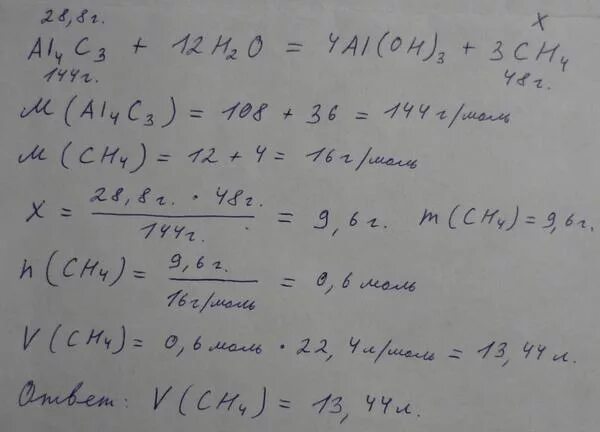 28,8г. X
Al₄C₃ + 12H₂O = 4Al(OH)₃ + 3CH₄
144г. 48г.
M(Al₄C₃) = 108 + 36 = 144г/моль
M(CH₄) = 12 + 4 = 16г/моль
X = 28,8г. · 48г. / 144г. = 9,6г. m(CH₄) = 9,6г.
n(CH₄) = 9,6г. / 16г/моль = 0,6моль
V(CH₄) = 0,6моль · 22,4л/моль = 13,44л.
Ответ: V(CH₄) = 13,44л.